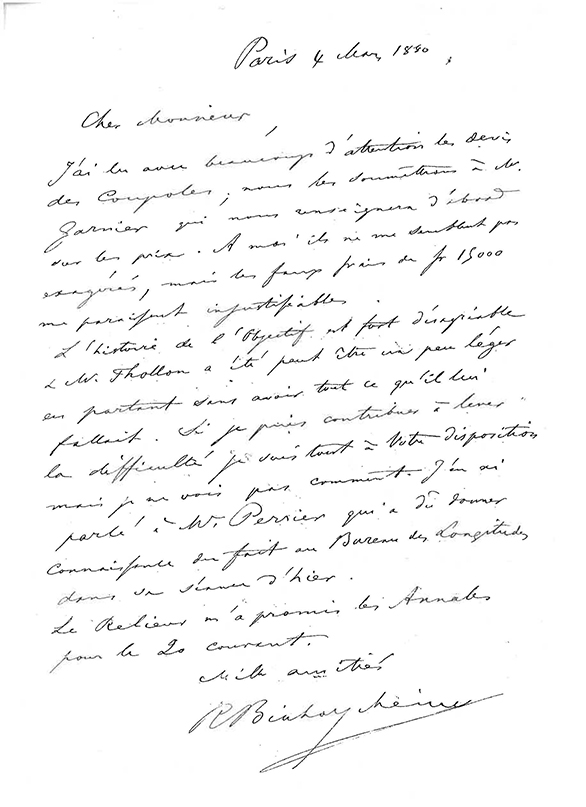 Paris 4 Mars 1880
Cher Monsieur
J'ai lu avec beaucoup d'attention les devis
des Coupoles, nous les soumettrons à M.
Garnier qui nous renseignera d'abord
sur les prix. A moi ils ne me semblent pas
exagérés, mais les faux frais de fr 15000
me paraissent injustifiables.
L'histoire de l'Objectif est fort désagréable
& M. Thollon a été peut être un peu léger
en partant sans avoir tout ce qu'il lui
fallait. Si je puis contribuer à lever
la difficulté je suis tout à Votre disposition
mais je ne vois pas comment. J'en ai
parlé à M. Perrier qui a dû donner
connaissance du fait au Bureau des Longitudes
dans sa séance d'hier.
Le Relieur m'a promis les Annales
pour le 20 courant.
Mille amitiés
R Bischoffsheim